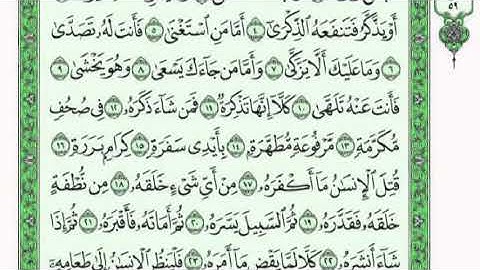 أَوْ يَذَّكَّرُ فَتَنفَعَهُ ٱلذِّكْرَىٰٓ ٤ أَمَّا مَنِ ٱسْتَغْنَىٰ ٥ فَأَنتَ لَهُۥ تَصَدَّىٰ
٦ وَمَا عَلَيْكَ أَلَّا يَزَّكَّىٰ ٧ وَأَمَّا مَن جَآءَكَ يَسْعَىٰ ٨ وَهُوَ يَخْشَىٰ ٩
فَأَنتَ عَنْهُ تَلَهَّىٰ ١٠ كَلَّآ إِنَّهَا تَذْكِرَةٌ ١١ فَمَن شَآءَ ذَكَرَهُۥ ١٢ فِى صُحُفٍ
مُّكَرَّمَةٍ ١٣ مَّرْفُوعَةٍ مُّطَهَّرَةٍۭ ١٤ بِأَيْدِى سَفَرَةٍ ١٥ كِرَامٍۭ بَرَرَةٍ ١٦
قُتِلَ ٱلْإِنسَٰنُ مَآ أَكْفَرَهُۥ ١٧ مِنْ أَىِّ شَىْءٍ خَلَقَهُۥ ١٨ مِن نُّطْفَةٍ
خَلَقَهُۥ فَقَدَّرَهُۥ ١٩ ثُمَّ ٱلسَّبِيلَ يَسَّرَهُۥ ٢٠ ثُمَّ أَمَاتَهُۥ فَأَقْبَرَهُۥ ٢١ ثُمَّ إِذَا
شَآءَ أَنشَرَهُۥ ٢٢ كَلَّا لَمَّا يَقْضِ مَآ أَمَرَهُۥ ٢٣ فَلْيَنظُرِ ٱلْإِنسَٰنُ إِلَىٰ طَعَامِهِۦٓ
٥٩